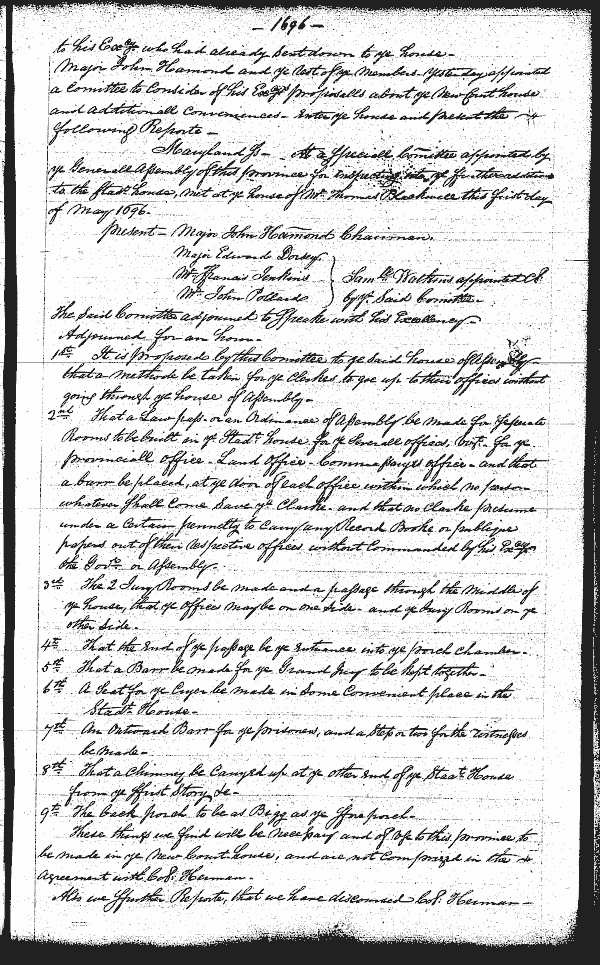 — 1696 —
to his Excy. who had already sent down to ye house —
Major John Hamond and ye rest of ye Members yesterday appointed
a Comittee to Consider of his Excys. proposalls about ye New Court house
and additionall Conveniences — Enter ye house and present the
following Reporte —
Maryland Ss — At a Speciall Comittee appointed by
ye Generall Assembly of this province for inspecting into ye ffurther additions
to the Stadt. house, met at ye house of Mr. Thomas Blackwell this first day
of May 1696.
present — Major John Hamond Chairman.
Major Edward Dorsey
Mr. Francis Jenkins } Samll. Watkins appointed Cl.
Mr. John Pollard by ye. Said Comittee —
The Said Comittee adjourned to Speake with his Excellency —
Adjourned for an hour —
1st. It is proposed by this Comittee to ye Said house of Assembly
that a methode be taken for ye Clarkes to goe up to their offices without
going through ye house of Assembly —
2nd That a Law pass or an Ordinance of Assembly be made for Seperate
Rooms to be built in ye Stadt. house for ye Severall offices, vizt. — for ye
provinciall office — Land office — Commissarys office — and that
a barr be placed, at ye door of each office within which no person
whatever Shall Come Save ye Clarke — and that no Clarke presume
under a Certain pennelty to Carry any Record Booke or publique
papers out of their respective offices without Commanded by his Excy. or
the Govr. or Assembly.
3rd. The 2 Jury Rooms be made and a passage through the middle of
ye house, that ye offices may be on one Side — and ye Jury Rooms on ye
other Side.
4th That the End of ye passage be ye Entrance into ye porch chamber —
5th. That a Barr be made for ye Grand Jury to be kept together —
6th. A Seat for ye Cryer be made in Some Convenient place in the
Stadt. House —
7th. An Outward Barr for ye prisoners, and a Step or two for the Witnesses
be made —
8th. That a Chimney be Carryed up at ye other End of ye Stadt. House
from ye ffirst Story &c —
9th. The back porch to be as Bigg as ye ffore porch —
These things we find will be necessary and of Use to this province to
be made in ye New Court house, and are not Comprized in the
Agreement with Col. Herman —
Also we ffurther Reporte, that we have discoursed Col. Herman —